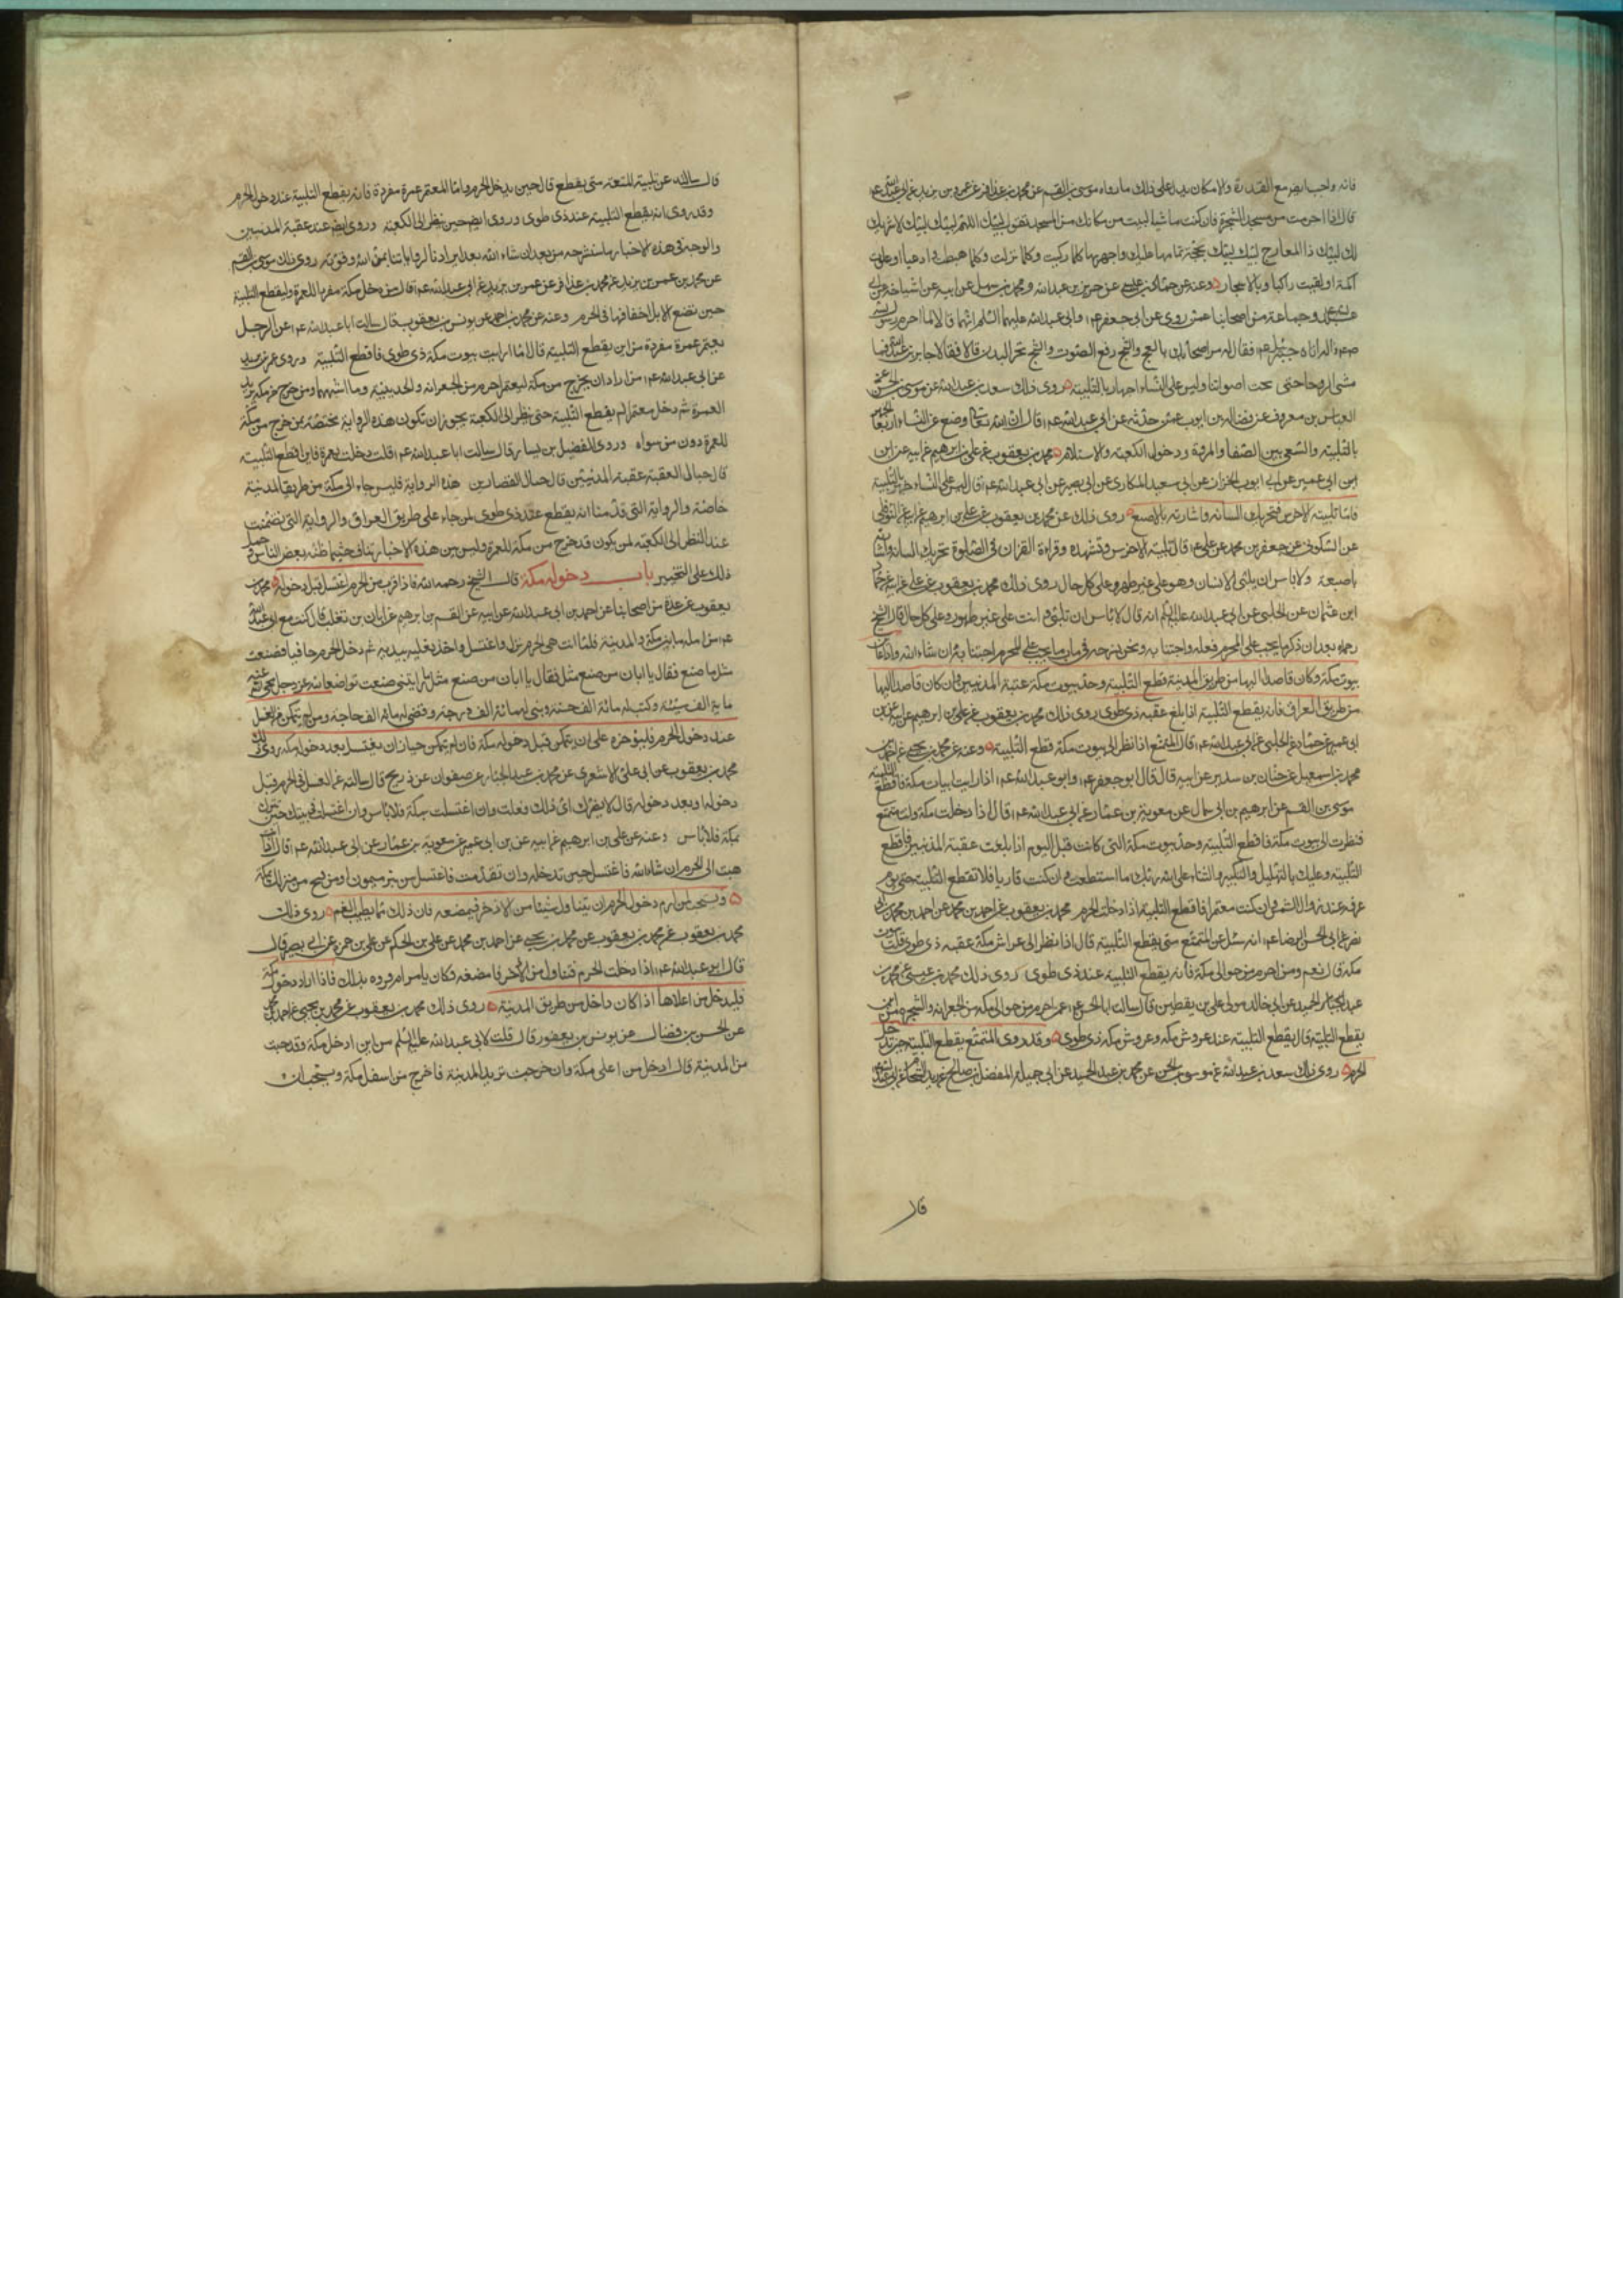 فانه واجب ايضا مع القدرة والامكان يدل على ذلك ما رواه موسى بن القسم عن محمد بن عذافر عن عمر بن يزيد عن ابى عبدالله ع
قال اذا احرمت من مسجد الشجرة فان كنت ماشيا لبيت من مكانك من المسجد تقول لبيك اللهم لبيك لبيك لا شريك
لك لبيك ذا المعارج لبيك لبيك بحجة تمامها عليك واجهر بها كلما ركبت وكلما نزلت وكلما هبطت واديا او علوت
اكمة او لقيت راكبا وبالاسحار وعنه عن حماد بن عيسى عن حريز بن عبدالله ومحمد بن سهل عن ابيه عن اشياخه عن ابى
عبدالله وجماعة من اصحابنا عمن روى عن ابى جعفر ع وابى عبدالله عليهما السلم انهما قالا لما احرم رسول الله
صع واله اتاه جبرئيل ع فقال له مر اصحابك بالعج والثج والعج رفع الصوت والثج نحر البدن قالا فقال جابر بن عبدالله فما
مشى الروحا حتى بحت اصواتنا وليس على النساء اجهار بالتلبية روى ذلك سعد بن عبدالله عن موسى بن الحسن عن
العباس بن معروف عن فضالة بن ايوب عمن حدثه عن ابى عبدالله ع قال ان الله تعالى وضع عن النساء اربعا الجهر
بالتلبية والسعى بين الصفا والمروة ودخول الكعبة والاستلام محمد بن يعقوب عن على بن ابرهيم عن ابيه عن ابن
ابن ابى عمير عن ابى ايوب الخزاز عن ابى سعيد المكارى عن ابى بصير عن ابى عبدالله ع قال ليس على النساء جهر بالتلبية
فاما تلبية الاخرس فتحريك لسانه واشارته بالاصبع روى ذلك عن محمد بن يعقوب عن على بن ابرهيم عن ابيه عن النوفلى
عن السكونى عن جعفر بن محمد عن على ع قال تلبية الاخرس وتشهده وقراءة القران فى الصلوة تحريك لسانه واشارته
باصبعه ولا باس ان يلبى الانسان وهو على غير طهر وعلى كل حال روى ذلك محمد بن يعقوب عن على عن ابيه عن حماد
ابن عثمان عن الحلبى عن ابى عبدالله عليه السلم انه قال لا باس ان تلبى وانت على غير طهور وعلى كل حال قال الشيخ
رحمه بعد ان ذكر ما يجب على المحرم فعله واجتنابه ونحن نشرحه فى باب ما يجب على المحرم اجتنابه ان شاء الله واذا عاين
بيوت مكة وكان قاصدا اليها من طريق المدينة قطع التلبية وحد بيوت مكة عقبة المدنيين وان كان قاصدا اليها
من طريق العراق فانه يقطع التلبية اذا بلغ عقبه ذى طوى روى ذلك محمد بن يعقوب عن على بن ابرهيم عن ابيه عن ابن
ابى عمير عن حماد عن الحلبى عن ابى عبدالله ع قال المتمتع اذا نظر الى بيوت مكة قطع التلبية وعنه عن محمد بن يحيى عن احمد بن
محمد بن اسمعيل عن حنان بن سدير عن ابيه قال قال ابو جعفر ع وابو عبدالله ع اذا رايت ابيات مكة فاقطع التلبية
موسى بن القسم عن ابرهيم بن ابى سمال عن معوية بن عمار عن ابى عبدالله ع قال اذا دخلت مكة وانت متمتع
فنظرت الى بيوت مكة فاقطع التلبية وحد بيوت مكة التى كانت قبل اليوم اذا بلغت عقبة المدنيين فاقطع
التلبية وعليك بالتهليل والتكبير والثناء على الله ربك ما استطعت وان كنت قارنا فلا تقطع التلبية حتى يوم
عرفه عند زوال الشمس وان كنت معتمرا فاقطع التلبية اذا دخلت الحرم محمد بن يعقوب عن احمد بن محمد عن احمد بن محمد بن ابى
نصر عن ابى الحسن الرضا ع انه سئل عن المتمتع متى يقطع التلبية قال اذا نظر الى عراش مكة عقبه ذى طوى قلت بيوت
مكة قال نعم ومن احرم من حوالى مكة فانه يقطع التلبية عند ذى طوى روى ذلك محمد بن عيسى عن محمد بن
عبد الجبار عن ابى خالد مولى على بن يقطين قال سالت ابا الحسن ع عمن احرم من حوالى مكة من الجعرانه والشجرة من اين
يقطع التلبية قال يقطع التلبية عند عروش مكة وعروش مكة ذى طوى وقد روى المتمتع يقطع التلبية حين يدخل
الحرم روى ذلك سعد بن عبدالله عن موسى بن الحسن عن محمد بن عبد الحميد عن ابى جميلة المفضل بن صالح عن زيد الشحام عن ابى عبدالله
قال
قال سالته عن تلبية المتعة متى يقطع قال حين يدخل الحرم واما المعتمر عمرة مفردة فانه يقطع التلبية عند دخول الحرم
وقد روى انه يقطع التلبية عند ذى طوى وروى ايضا حين ينظر الى الكعبة وروى ايضا عند عقبة المدنيين
والوجه فى هذه الاخبار ما سنشرحه من بعد ان شاء الله بعد ايرادنا لرواياتنا بمن الله وقوته روى ذلك موسى بن القسم
عن محمد بن عمر بن يزيد عن محمد بن عذافر عن عمر بن يزيد عن ابى عبدالله ع قال من دخل مكة مفردا للعمرة وليقطع التلبية
حين تضع الابل اخفافها فى الحرم وعنه عن محمد بن احمد عن يونس بن يعقوب قال سالت ابا عبدالله ع عن الرجل
يعتمر عمرة مفردة من اين يقطع التلبية قال اذا رايت بيوت مكة ذى طوى فاقطع التلبية وروى عمر بن يزيد
عن ابى عبدالله ع من اراد ان يخرج من مكة ليعتمر احرم من الجعرانه والحديبية وما اشبههما ومن خرج من مكة يريد
العمرة ثم دخل معتمرا لم يقطع التلبية حتى ينظر الى الكعبة يجوز ان تكون هذه الرواية مختصة بمن خرج من مكة
للعمرة دون من سواه وروى الفضيل بن يسار قال سالت ابا عبدالله ع قلت دخلت بعمرة فاين اقطع التلبية
قال حيال العقبة عقبة المدنيين قال حيال القصارين هذه الرواية فليس جاء الى مكة من طريق المدينة
خاصة والرواية التى قدمنا انه يقطع عند ذى طوى لمن جاء على طريق العراق والرواية التى تضمنت
عند النظر الى الكعبة لمن يكون قد خرج من مكة للعمرة وليس بين هذه الاخبار تناف حيثما ظنه بعض الناس وحمل
ذلك على التخيير باب دخول مكة قال الشيخ رحمه الله فاذا قرب من الحرم اغتسل قبل دخوله محمد بن
يعقوب عن عدة من اصحابنا عن احمد بن ابى عبدالله عن ابيه عن القسم بن ابرهيم عن ابان بن تغلب قال كنت مع ابى عبدالله
ع مزامله ما بين مكة والمدينة فلما انتهى الى الحرم نزل واغتسل واخذ نعليه بيديه ثم دخل الحرم حافيا فصنعت
مثل ما صنع فقال يا ابان من صنع مثل ما رايتنى صنعت تواضعا لله عز وجل محى الله عنه
ماية الف سيئة وكتب له مائة الف حسنة وبنى له مائة الف درجة وقضى له مائة الف حاجة ومن لم يتمكن من الغسل
عند دخول الحرم فليؤخره على ان يتمكن قبل دخوله مكة فان لم يتمكن جاز ان يغتسل بعد دخوله مكة روى ذلك
محمد بن يعقوب عن ابى على الاشعرى عن محمد بن عبد الجبار عن صفوان عن ذريح قال سالته عن الغسل فى الحرم قبل
دخوله او بعد دخوله قال لا يضرك اى ذلك فعلت وان اغتسلت بمكة فلا باس وان اغتسلت فى بيتك حين تنزل
بمكة فلا باس وعنه عن على بن ابرهيم عن ابيه عن ابن ابى عمير عن معوية بن عمار عن ابى عبدالله ع قال اذا
انتهيت الى الحرم ان شاء الله فاغتسل حين تدخله وان تقدمت فاغتسل من بئر ميمون او من فخ او من منزلك بمكة
ويستحب لمن اراد دخول الحرم ان يتناول شيئا من الاذخر فيمضغه فان ذلك مما يطيب الفم روى ذلك
محمد بن يعقوب عن محمد بن يعقوب عن محمد بن يحيى عن احمد بن محمد عن على بن الحكم عن على بن حمزه عن ابى بصير قال
قال ابو عبدالله ع اذا دخلت الحرم فتناول من الاذخر فامضغه وكان يامر ام فروه بذلك فاذا اراد دخول مكة
فليدخل من اعلاها اذا كان داخل من طريق المدينة روى ذلك محمد بن يعقوب عن محمد بن يحيى عن احمد بن محمد
عن الحسن بن فضال عن يونس بن يعقوب قال قلت لابى عبدالله عليه السلم من اين ادخل مكة وقد جئت
من المدينة قال ادخل من اعلى مكة وان خرجت تريد المدينة فاخرج من اسفل مكة ويستحب ان